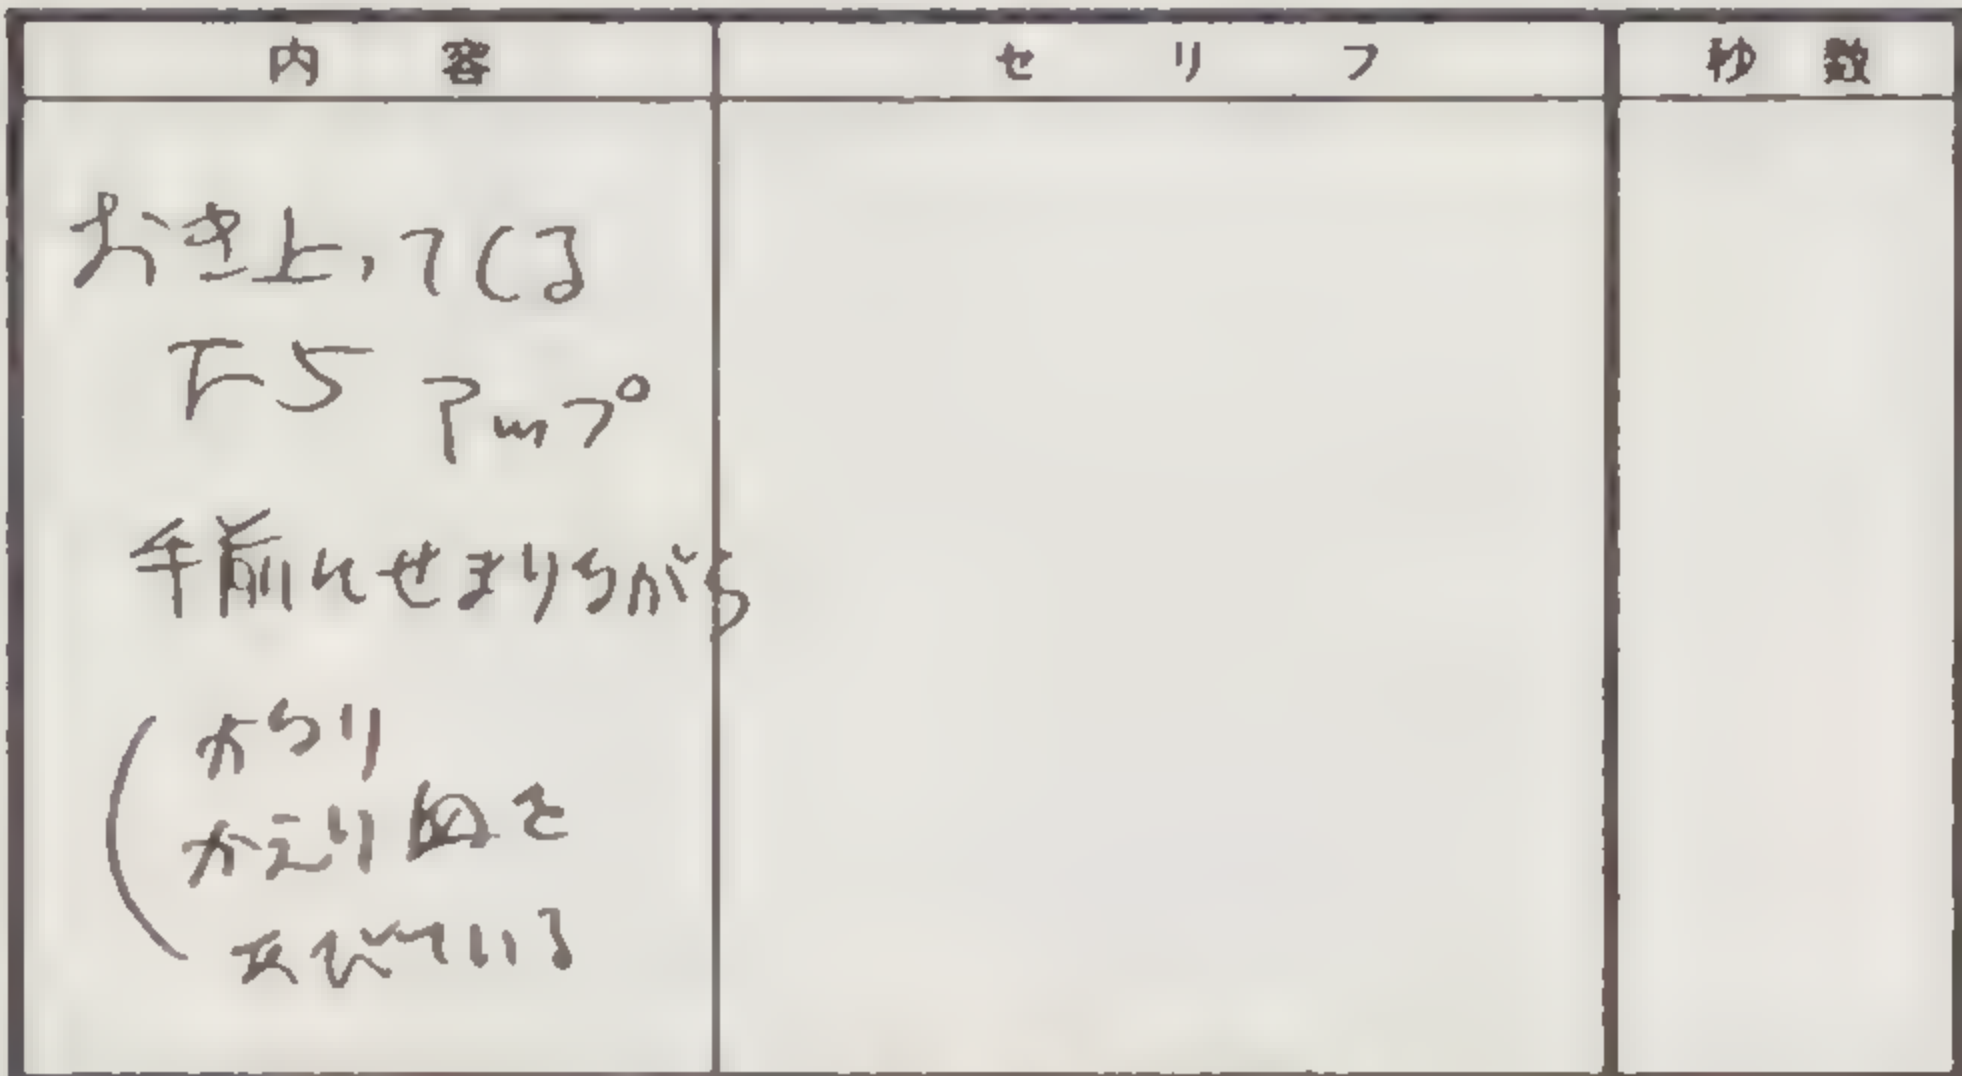 内容 セリフ 秒数
おき上ってくる
下から アップ
手前にせまりながら
かなり
かえり血を
あびている